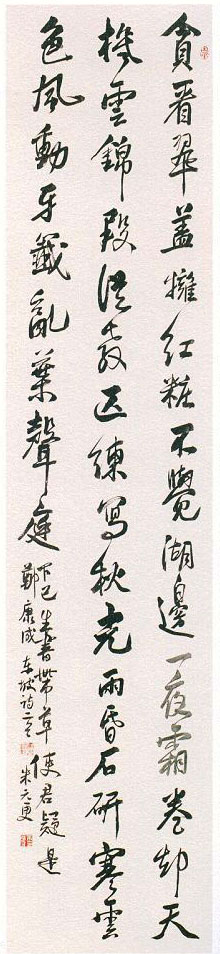 貪看翠蓋擁紅粧不覺湖邊一夜霜卷却天
機雲錦段從教匹練寫秋光雨昏石研寒雲
色風動牙籤亂葉聲庭下已生書帶草使君疑是
鄭康成 东坡诗二首
朱元更